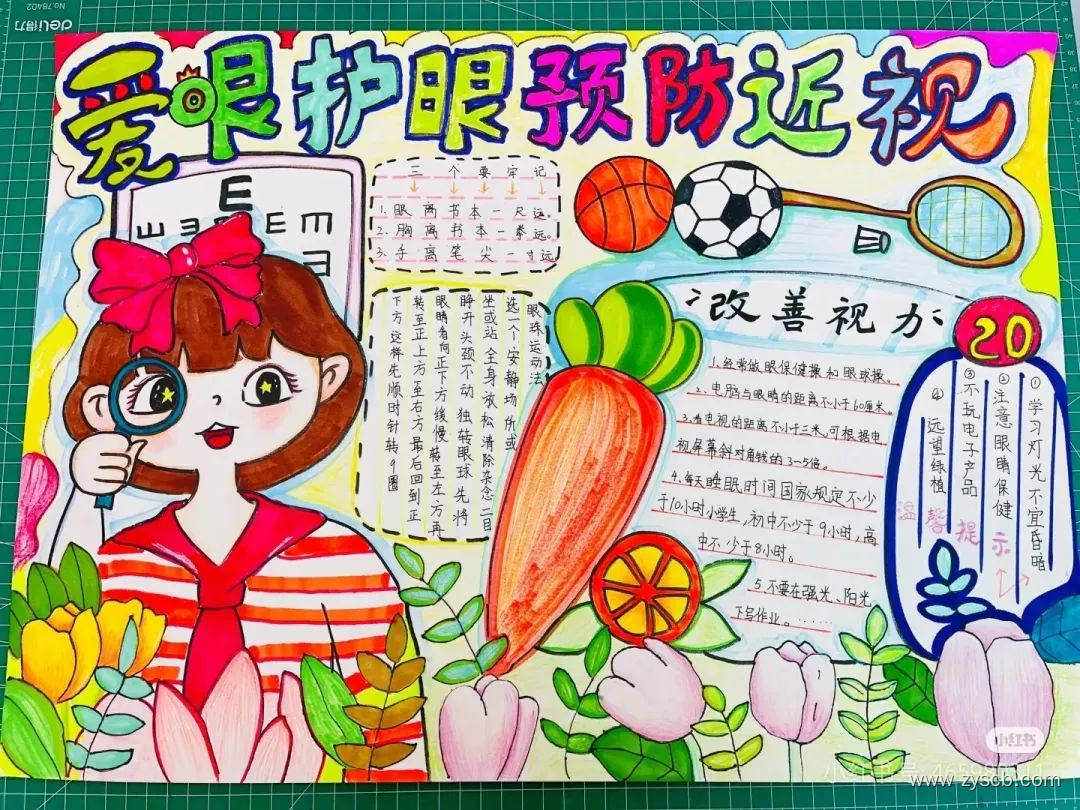 No.78402
deli 得力
爱眼护眼预防近视
E
ш ヨ E m
三个要牢记
1.眼离书本一尺远。
2.胸离书本一拳远。
3.手离笔尖一寸远
眼珠运动法
选一个安静场所或
坐或站全身放松清除杂念二目
睁开头颈不动独转眼球先将
眼睛看向正下方缓慢转至左方再
转至正上方至右方最后回到正
下方这样先顺时针转9圈
改善视力
1.经常做眼保健操和眼球操。
2.电脑与眼睛的距离不小于60厘米。
3.看电视的距离不小于三米。可根据电
视屏幕斜对角线的3-5倍。
4.每天睡眠时间国家规定不少
于10小时小学生,初中不少于9小时,高
中不少于8小时。
5.不要在强光、阳光
下写作业。......
20
①学习灯光不宜昏暗
②注意眼睛保健
③不玩电子产品
④远望绿植
温馨提示
小红书
www.zyscb.com